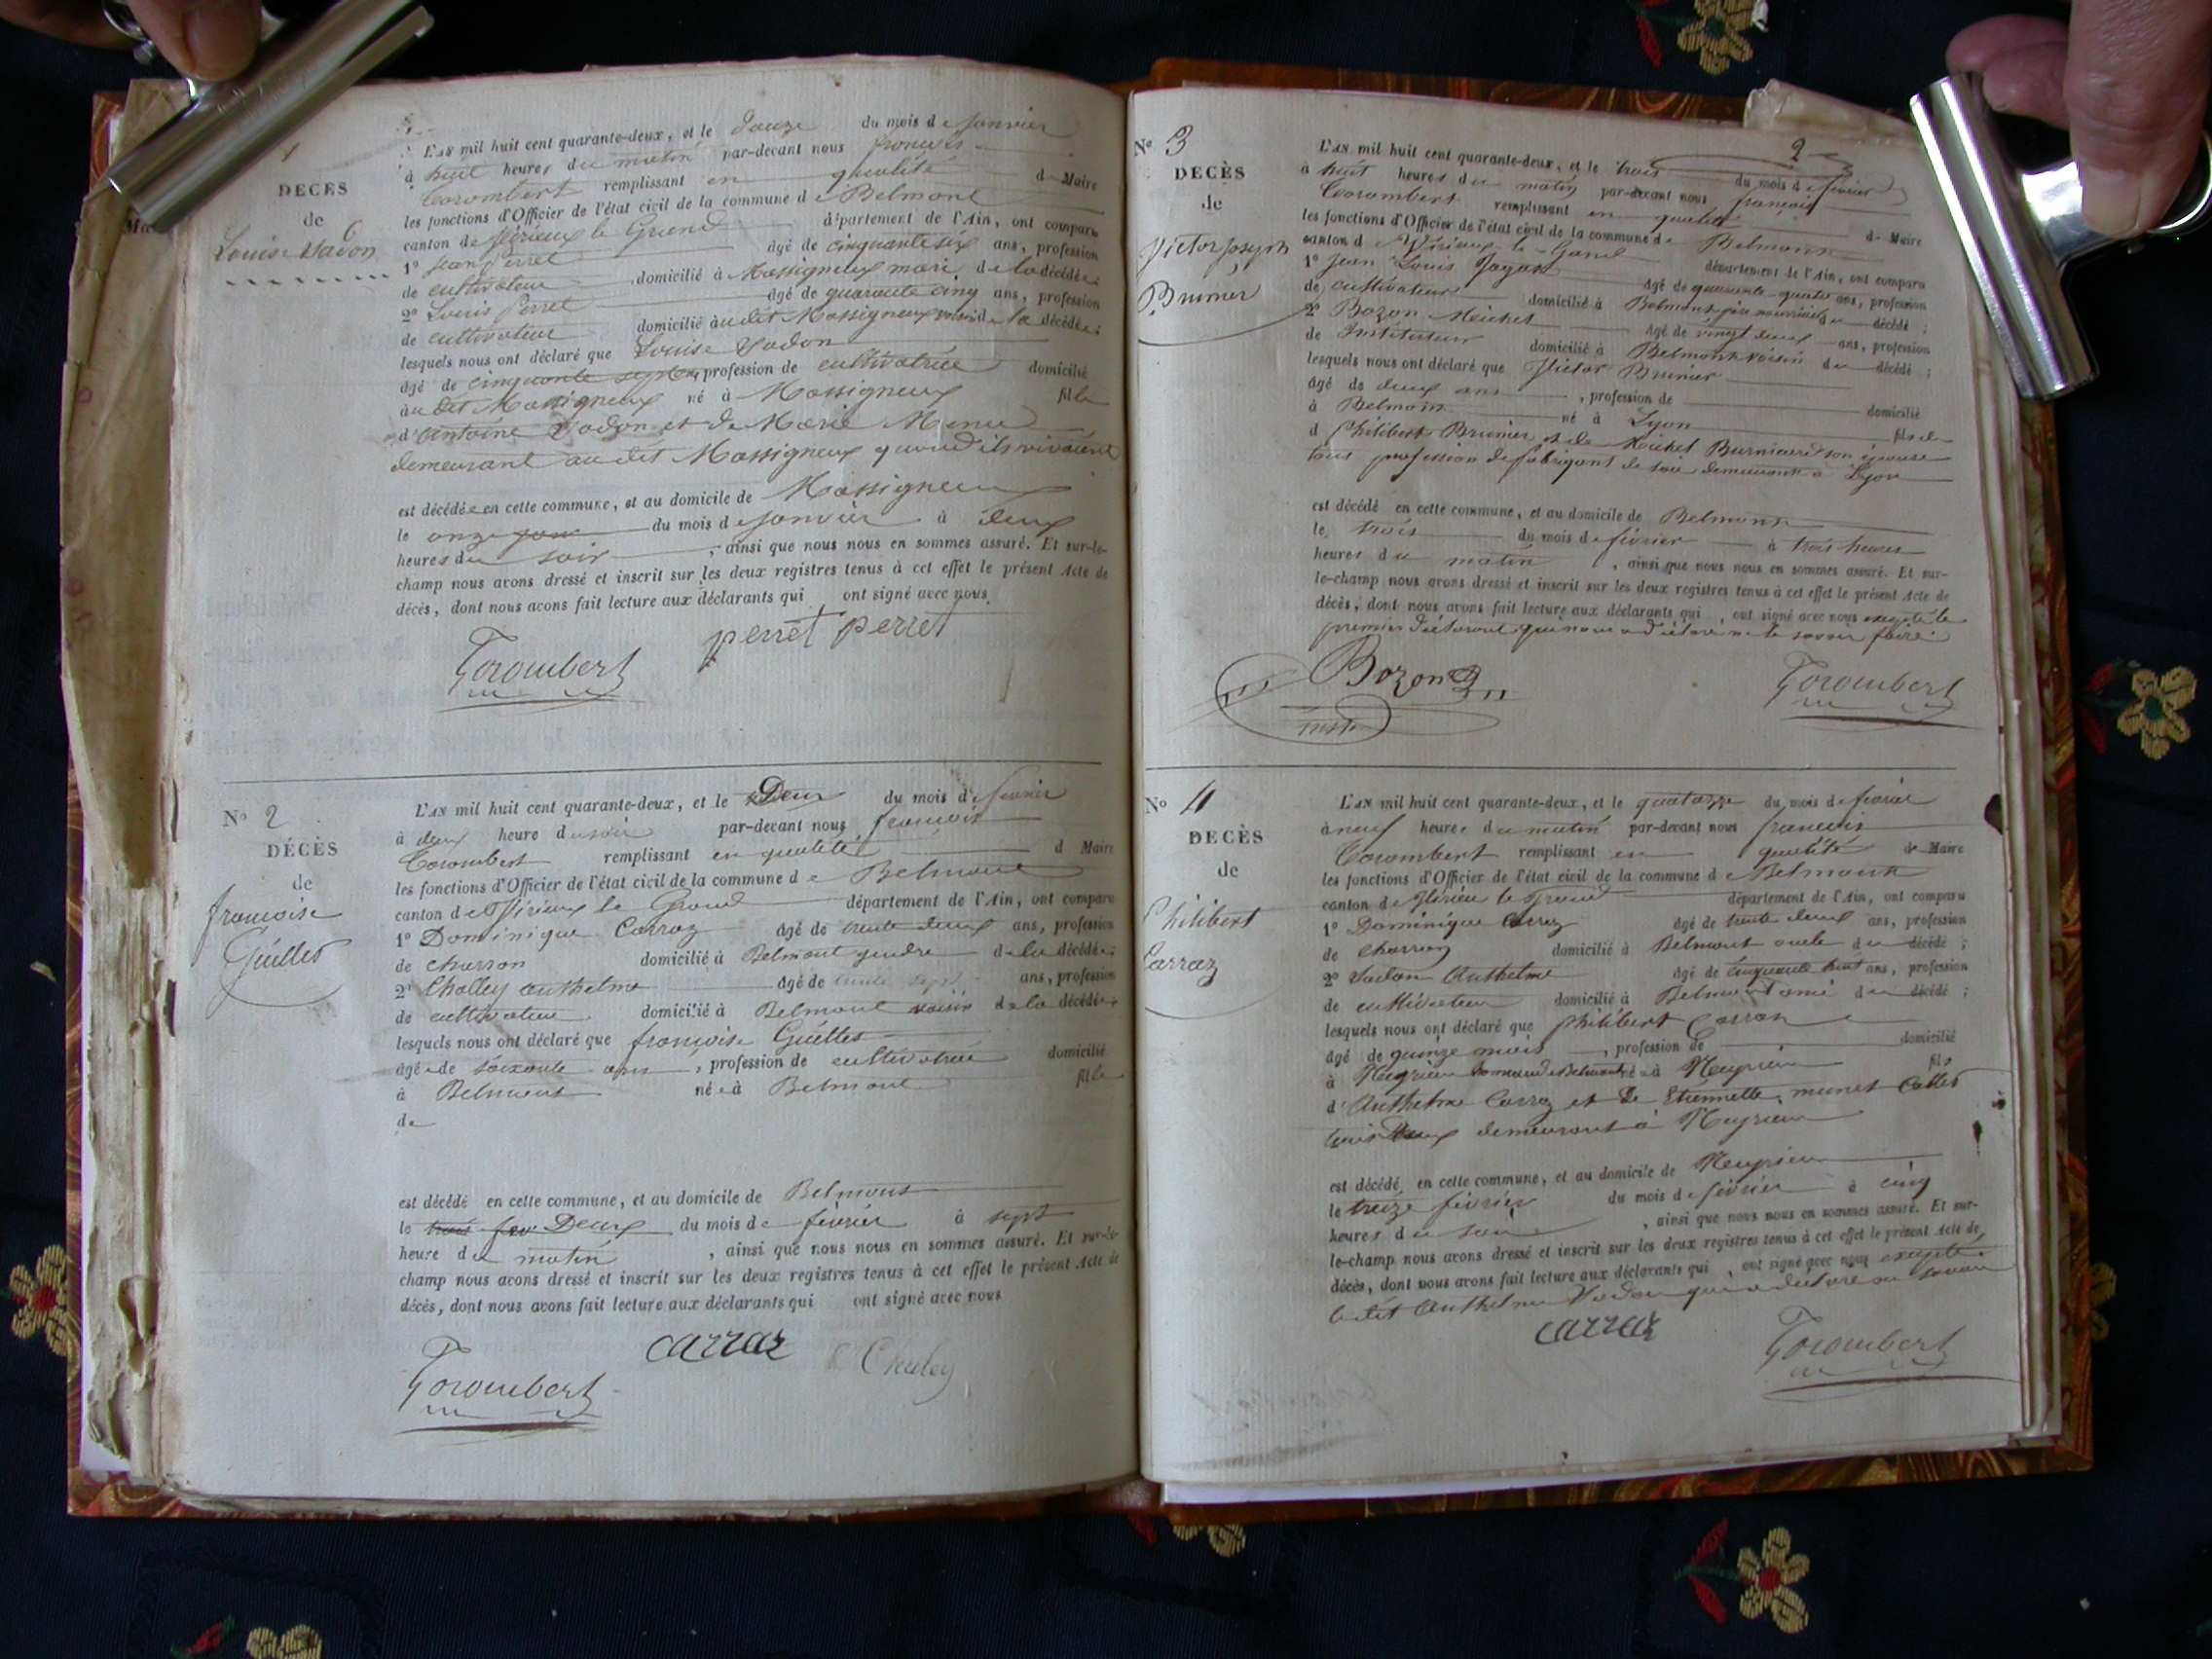 1
DECÈS
de
Louise Vadon
L'AN mil huit cent quarante-deux, et le douze du mois de janvier
à huit heures du matin par-devant nous françois
Corombert remplissant en qualité d Maire
les fonctions d'Officier de l'état civil de la commune de Belmont
canton de Virieux le Grand département de l'Ain, ont comparu
1° Jean Perret agé de cinquante six ans, profession
de cultivateur domicilié à Massigneux mari de la décédée;
2° Louis Perret agé de quarante cinq ans, profession
de cultivateur domicilié audit Massigneux voisin de la décédée;
lesquels nous ont déclaré que Louise Vadon
agé de cinquante sept ans, profession de cultivatrice domicilié
audit Massigneux né à Massigneux fille
d'Antoine Vadon et de Marie
demeurant audit Massigneux quand ils vivaient
est décédée en cette commune, et au domicile de Massigneux
le onze du mois de janvier à deux
heures du soir, ainsi que nous nous en sommes assuré. Et sur-le-
champ nous avons dressé et inscrit sur les deux registres tenus à cet effet le présent Acte de
décès, dont nous avons fait lecture aux déclarants qui ont signé avec nous
perret perret
Corombert
N° 2
DÉCÈS
de
françoise
Guillet
L'AN mil huit cent quarante-deux, et le Deux du mois de fevrier
à deux heure du soir par-devant nous françois
Corombert remplissant en qualité d Maire
les fonctions d'Officier de l'état civil de la commune de Belmont
canton de Virieux le Grand département de l'Ain, ont comparu
1° Dominique Carraz agé de trente deux ans, profession
de charron domicilié à Belmont gendre de la décédée;
2° Challey anthelme agé de trente sept ans, profession
de cultivateur domicilié à Belmont voisin de la décédée
lesquels nous ont déclaré que françoise Guillet
agée de soixante ans, profession de cultivatrice domicilié
à Belmont née à Belmont fille
de
est décédé en cette commune, et au domicile de Belmont
le trois fev Deux du mois de février à sept
heure du matin, ainsi que nous nous en sommes assuré. Et sur-le-
champ nous avons dressé et inscrit sur les deux registres tenus à cet effet le présent Acte de
décès, dont nous avons fait lecture aux déclarants qui ont signé avec nous
carraz Chaley
Corombert
2
N° 3
DECÈS
de
Victor joseph
Brunier
L'AN mil huit cent quarante-deux, et le trois du mois de fevrier
à huit heures du matin par-devant nous françois
Corombert remplissant en qualité d Maire
les fonctions d'Officier de l'état civil de la commune de Belmont
canton de Virieux le Grand département de l'Ain, ont comparu
1° Jean Louis agé de quarante-quatre ans, profession
de cultivateur domicilié à Belmont père nourricier du décédé;
2° Bozon Michel agé de vingt deux ans, profession
de Instituteur domicilié à Belmont voisin du décédé;
lesquels nous ont déclaré que Victor Brunier
âgé de deux ans, profession de domicilié
à Belmont né à Lyon fils de
d Philibert Brunier et de son épouse
tous profession de fabriquant de soie demeurant à Lyon
est décédé en cette commune, et au domicile de Belmont
le trois du mois de février à trois heures
heures du matin, ainsi que nous nous en sommes assuré. Et sur-
le-champ nous avons dressé et inscrit sur les deux registres tenus à cet effet le présent Acte de
décès, dont nous avons fait lecture aux déclarants qui, ont signé avec nous excepté le
premier déclarant qui nous a déclaré ne le savoir faire
Bozon
Corombert
N° 4
DECÈS
de
Philibert
Carraz
L'AN mil huit cent quarante-deux, et le quatorze du mois de fevrier
à neuf heures du matin par-devant nous francois
Corombert remplissant en qualité de Maire
les fonctions d'Officier de l'état civil de la commune de Belmont
canton de Virieu le Grand département de l'Ain, ont comparu
1° Dominique Carraz agé de trente deux ans, profession
de charron domicilié à Belmont oncle du décédé;
2° Vadon Anthelme agé de cinquante huit ans, profession
de cultivateur domicilié à Belmont ami du décédé;
lesquels nous ont déclaré que philibert Carraz
âgé de quinze mois, profession de domicilié
à Meyrieu commune de Belmont né à Meyrieu fils
d'Anthelme Carraz et de Etiennette
tous Deux demeurant à Meyrieu
est décédé en cette commune, et au domicile de Meyrieu
le treize février du mois de février à cinq
heures du soir, ainsi que nous nous en sommes assuré. Et sur-
le-champ nous avons dressé et inscrit sur les deux registres tenus à cet effet le présent Acte de
décès, dont nous avons fait lecture aux déclarants qui, ont signé avec nous excepté
ledit Anthelme Vadon qui a déclaré ne savoir
carraz
Corombert